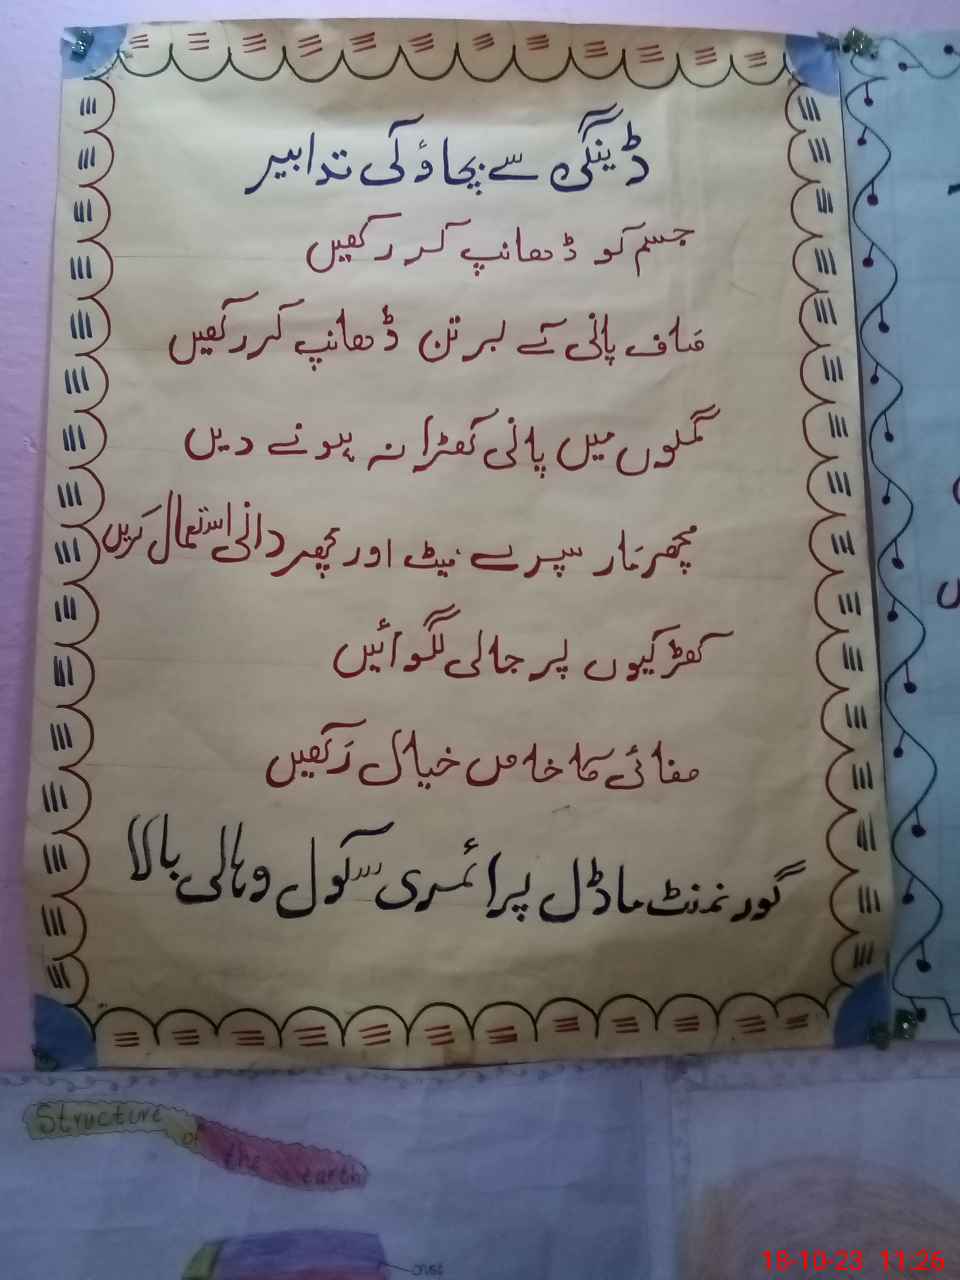 ڈینگی سے بچاؤ کی تدابیر
جسم کو ڈھانپ کر رکھیں
صاف پانی کے برتن ڈھانپ کر رکھیں
گملوں میں پانی کھڑا نہ ہونے دیں
مچھر مار سپرے نیٹ اور مچھر دانی استعمال کریں
کھڑکیوں پر جالی لگوائیں
صفائی کا خاص خیال رکھیں
گورنمنٹ ماڈل پرائمری سکول وہالی بالا
Structure
of
the earth
crust
18-10-23 11:26